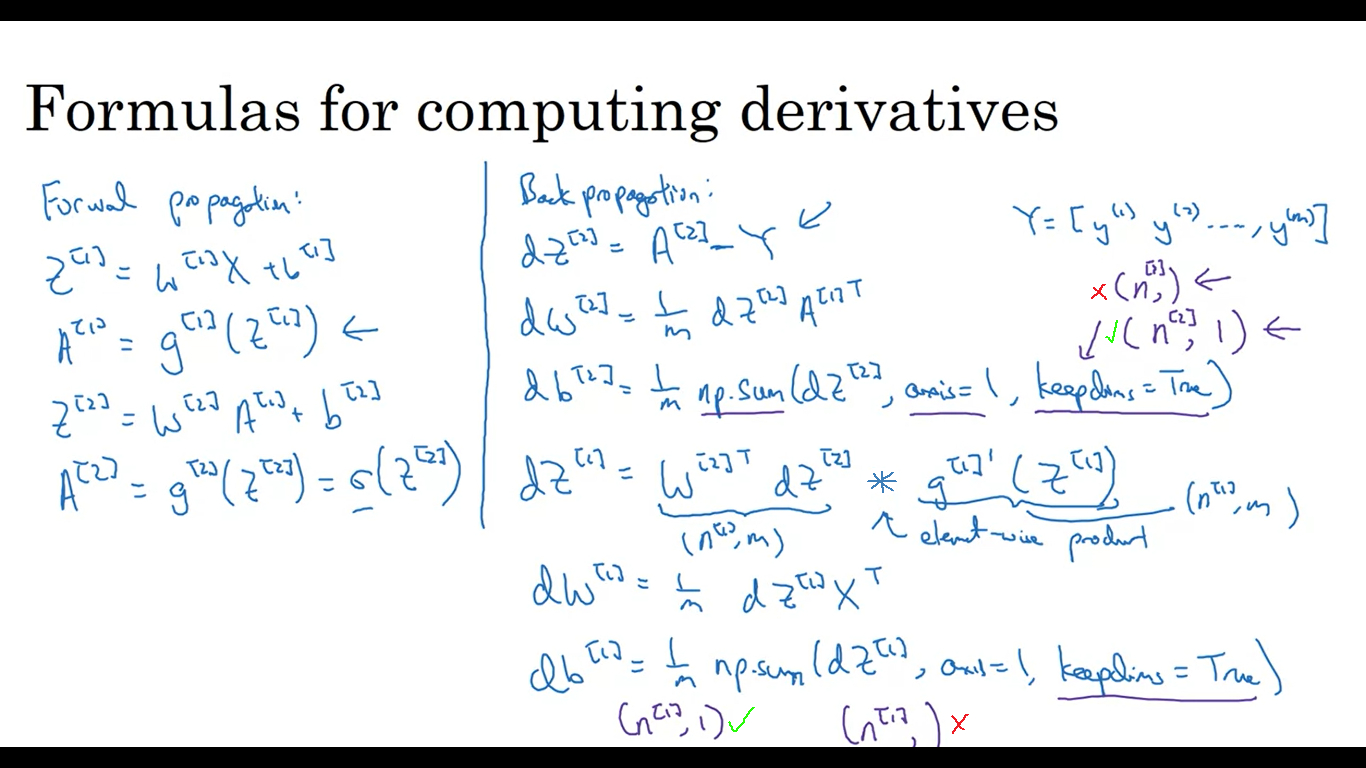 Formulas for computing derivatives
Forward propagation:
Z^[1] = W^[1] X + b^[1]
A^[1] = g^[1](Z^[1]) ←
Z^[2] = W^[2] A^[1] + b^[2]
A^[2] = g^[2](Z^[2]) = σ(Z^[2])
Back propagation:
dZ^[2] = A^[2] − Y ↙
dW^[2] = 1/m dZ^[2] A^[1]T
db^[2] = 1/m np.sum(dZ^[2], axis=1, keepdims=True)
dZ^[1] = W^[2]T dZ^[2] * g^[1]'(Z^[1])
(n^[1], m) ↖ element-wise product (n^[1], m)
dW^[1] = 1/m dZ^[1] X^T
db^[1] = 1/m np.sum(dZ^[1], axis=1, keepdims=True)
(n^[1], 1) ✓ (n^[1], ) ×
Y = [y^(1) y^(2) ...., y^(m)]
× (n^[2], ) ←
↙ ✓ (n^[2], 1) ←